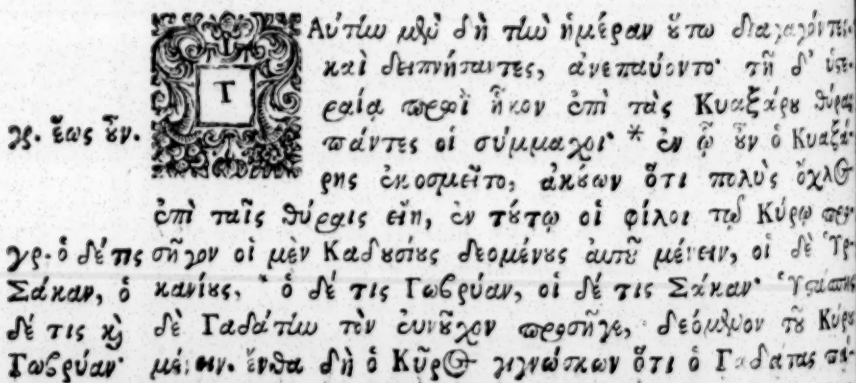 ΤΑύτην μὲν δὴ τὴν ἡμέραν ὅτω διαγαγόντες
καὶ δειπνήσαντες, ἀνεπαύοντο· τῇ δ' ὑστε-
ραίᾳ πρωῒ ἧκον ἐπὶ τὰς Κυαξάρου θύρας
γρ. ἕως οὖν. πάντες οἱ σύμμαχοι· * ἐν ᾧ οὖν ὁ Κυαξά-
ρης ἐκοσμεῖτο, ἀκούων ὅτι πολὺς ὄχλος
ἐπὶ ταῖς θύραις εἴη, ἐν τούτῳ οἱ φίλοι τῷ Κύρῳ προσ
γρ. ὁ δέ τις σῆγον οἱ μὲν Καδουσίους δεομένους αὐτοῦ μένειν, οἱ δὲ Ὑρ-
Σάκαν, ὁ κανίους, * ὁ δέ τις Γωβρύαν, οἱ δέ τις Σάκαν· Ὑστάσπης
δέ τις καὶ δὲ Γαδάταν τὸν εὐνοῦχον προσῆγε, δεόμενον τοῦ Κύρου
Γωβρύαν· μένειν. ἔνθα δὴ ὁ Κῦρος γιγνώσκων ὅτι ὁ Γαδάτας πά-